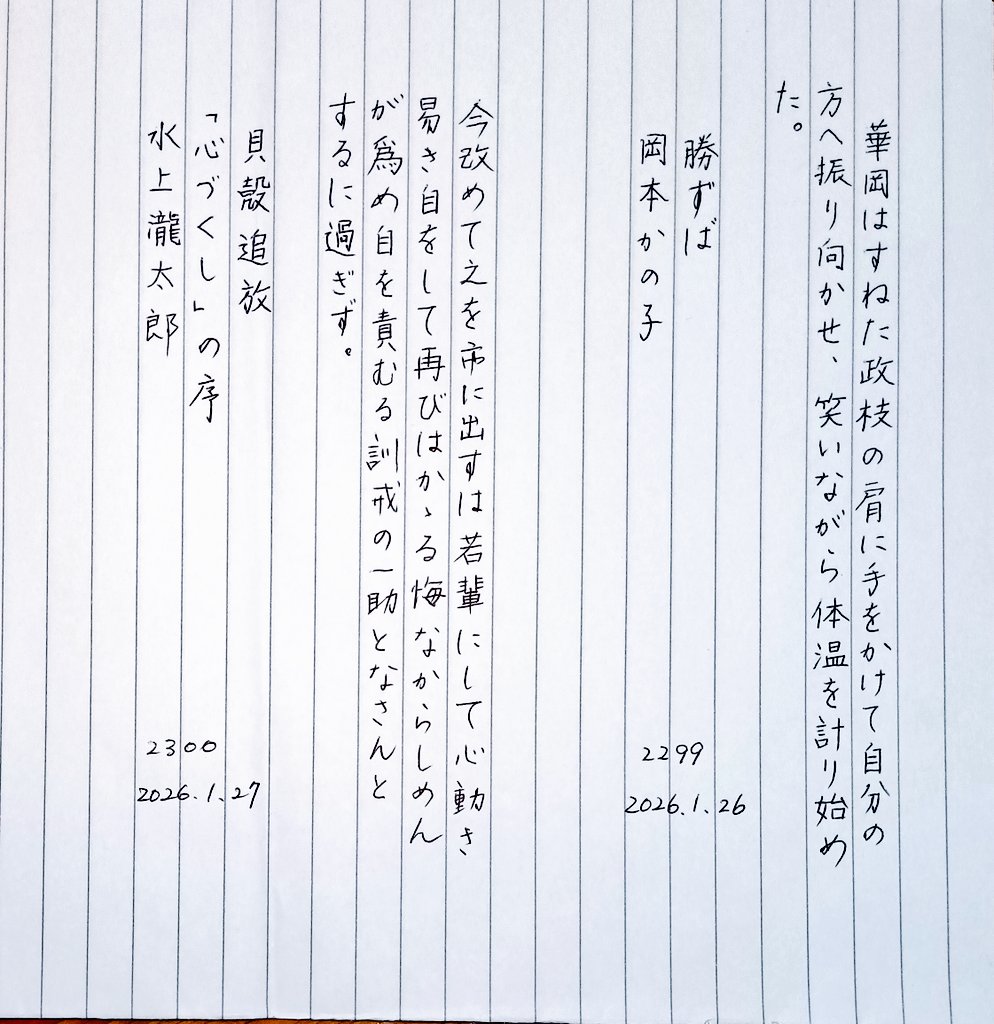 華岡はすねた政枝の肩に手をかけて自分の
方へ振り向かせ、笑いながら体温を計り始め
た。
勝ずば
岡本かの子
2299
2026.1.26
今改めて之を市に出すは若輩にして心動き
易き自をして再びはかゝる悔なからしめん
が爲め自を責むる訓戒の一助となさんと
するに過ぎず。
貝殻追放
「心づくし」の序
水上瀧太郎
2300
2026.1.27